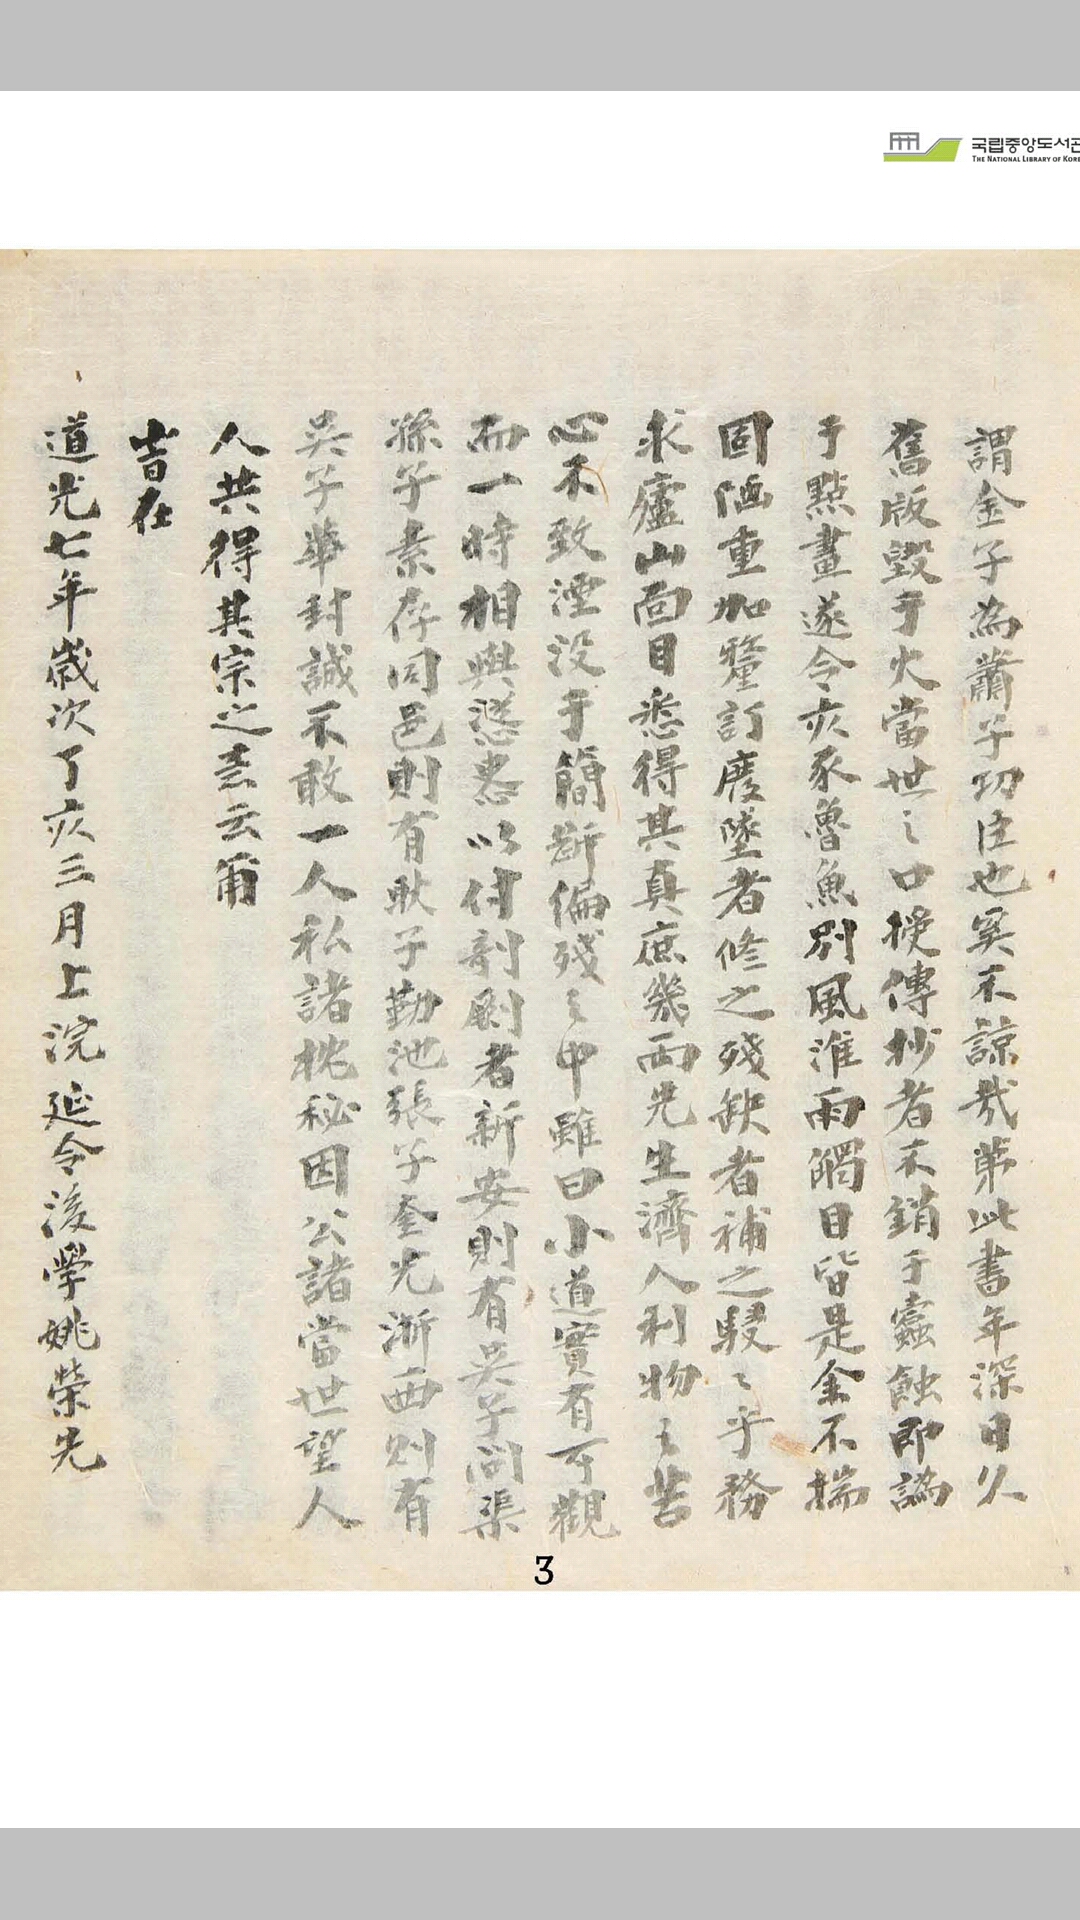 국립중앙도서관
THE NATIONAL LIBRARY OF KOREA
謂金子為蕭子功臣也奚不諒哉第此書年深日久
舊版毀于火當世之口授傳抄者不銷于蠹蝕即譌
于點畫遂令亥豕魯魚別風淮雨觸目皆是余不揣
固陋重加釐訂廢墜者修之殘缺者補之駸〻乎務
求廬山面目悉得其真庶幾兩先生濟人利物之苦
心不致湮沒于簡斷編殘之中雖曰小道實有可觀
而一時相與慫恿以付剞劂者新安則有吳子問渠
孫子素存同邑則有耿子勤池張子奎光浙西則有
吳子華封誠不敢一人私諸枕秘因公諸當世望人
人共得其宗之云爾
峕在
道光七年歲次丁亥三月上浣延令後學姚榮先
3